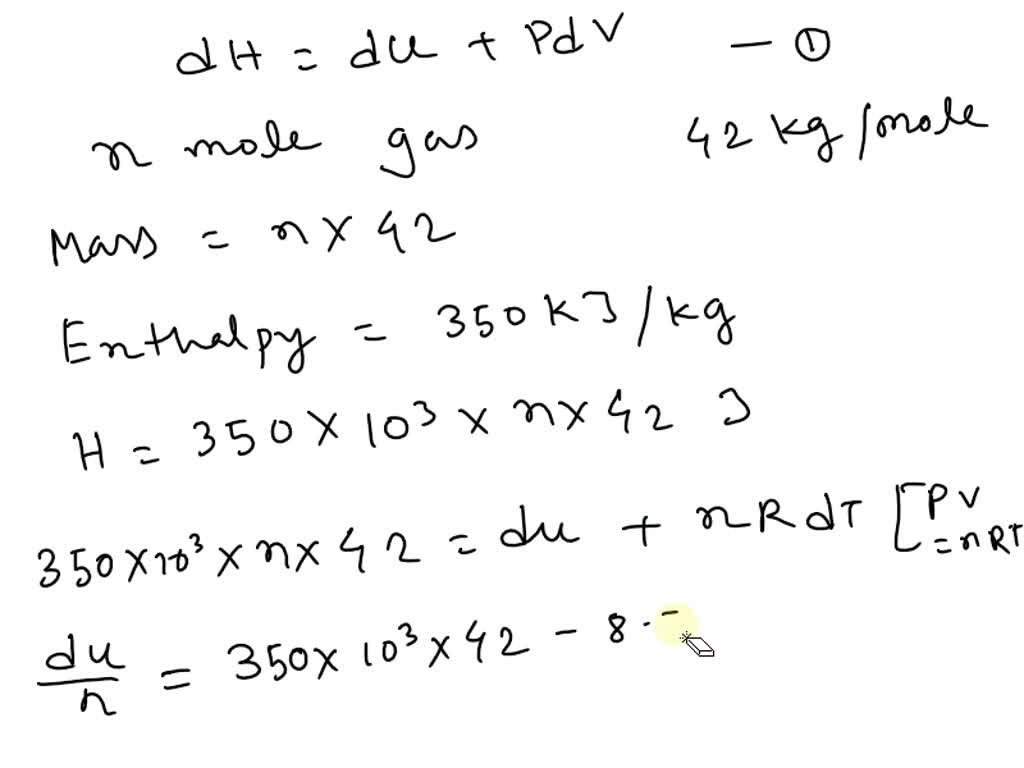 dH = du + PdV — ①
n mole gas 42 kg/mole
Mass = n x 42
Enthalpy = 350 kJ/kg
H = 350 x 10³ x n x 42 J
350 x 10³ x n x 42 = du + nRdT [PV = nRT
du/n = 350 x 10³ x 42 - 8.